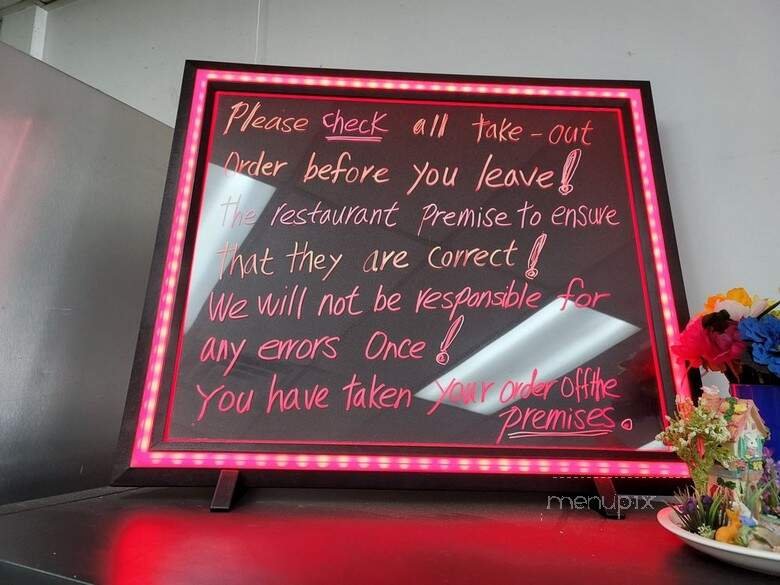 Please check all take-out
Order before you leave!
The restaurant premise to ensure
that they are correct!
We will not be responsible for
any errors Once!
You have taken your order off the
premises.
menupix